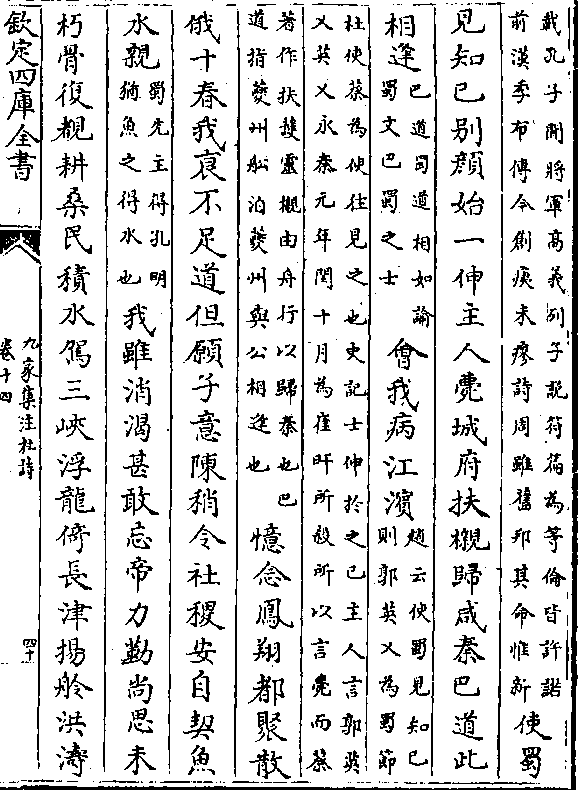 載孔子間將軍高義列子說符篇為等倫皆許諾
前漢季布傳今創痍未瘳詩周雖舊邦其命惟新
使蜀
見知已别顔始一伸主人薨城府扶櫬歸咸秦巴道此
相逢
巴道蜀道相如論
蜀文巴蜀之士
㑹我病江濵
趙云使蜀見知已
則郭英乂為蜀節
杜使蔡為使往見之也史記士伸於之已主人言郭英
乂英乂永泰元年閏十月為崔旰所殺所以言薨而蔡
著作扶䕶靈櫬由舟行以歸秦也巴
道指䕫州舩泊䕫州與公相逢也
憶念鳳翔都聚散
俄十春我衰不足道但願子意陳稍令社稷安自契魚
水親
蜀先主得孔明
猶魚之得水也
我雖消渴甚敢忘帝力勤尚思未
朽骨復覩耕桑民積水駕三峽浮龍倚長津揚舲洪濤
欽定四庫全書
九家集注杜詩
卷十四
四十